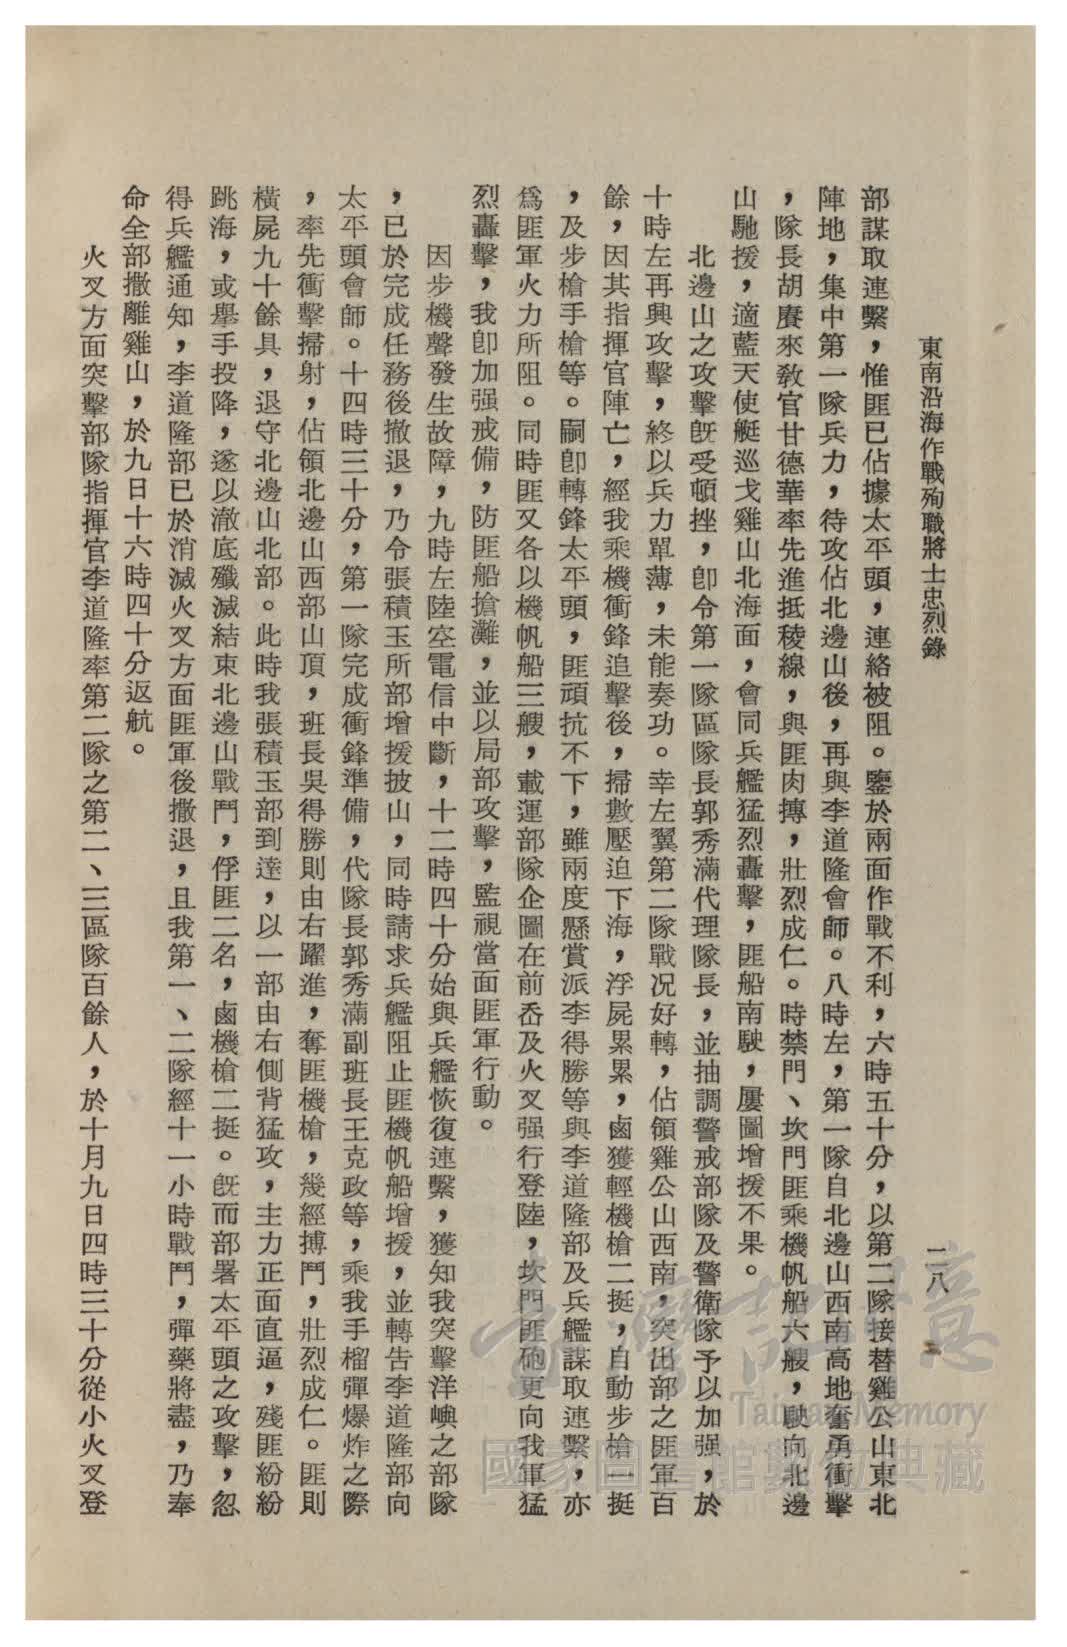 東南沿海作戰殉職將士忠烈錄
二八
部謀取連繫，惟匪已佔據太平頭，連絡被阻。鑒於兩面作戰不利，六時五十分，以第二隊接替雞公山東北
陣地，集中第一隊兵力，待攻佔北邊山後，再與李道隆會師。八時左，第一隊自北邊山西南高地奮勇衝擊
，隊長胡賡來教官甘德華率先進抵稜線，與匪肉搏，壯烈成仁。時禁門、坎門匪乘機帆船六艘，駛向北邊
山馳援，適藍天使艇巡弋雞山北海面，會同兵艦猛烈轟擊，匪船南駛，屢圖增援不果。
北邊山之攻擊既受頓挫，卽令第一隊區隊長郭秀滿代理隊長，並抽調警戒部隊及警衛隊予以加强，於
十時左再興攻擊，終以兵力單薄，未能奏功。幸左翼第二隊戰況好轉，佔領雞公山西南，突出部之匪軍百
餘，因其指揮官陣亡，經我乘機衝鋒追擊後，掃數壓迫下海，浮屍累累，鹵獲輕機槍二挺，自動步槍一挺
，及步槍手槍等。嗣卽轉鋒太平頭，匪頑抗不下，雖兩度懸賞派李得勝等與李道隆部及兵艦謀取連繫，亦
爲匪軍火力所阻。同時匪又各以機帆船三艘，載運部隊企圖在前岙及火叉强行登陸，坎門匪砲更向我軍猛
烈轟擊，我卽加强戒備，防匪船搶灘，並以局部攻擊，監視當面匪軍行動。
因步機聲發生故障，九時左陸空電信中斷，十二時四十分始與兵艦恢復連繫，獲知我突擊洋嶼之部隊
，已於完成任務後撤退，乃令張積玉所部增援披山，同時請求兵艦阻止匪機帆船增援，並轉告李道隆部向
太平頭會師。十四時三十分，第一隊完成衝鋒準備，代隊長郭秀滿副班長王克政等，乘我手榴彈爆炸之際
，率先衝擊掃射，佔領北邊山西部山頂，班長吳得勝則由右躍進，奪匪機槍，幾經搏鬥，壯烈成仁。匪則
橫屍九十餘具，退守北邊山北部。此時我張積玉部到達，以一部由右側背猛攻，主力正面直逼，殘匪紛紛
跳海，或舉手投降，遂以澈底殲滅結束北邊山戰鬥，俘匪二名，鹵機槍二挺。旣而部署太平頭之攻擊，忽
得兵艦通知，李道隆部已於消滅火叉方面匪軍後撤退，且我第一、二隊經十一小時戰鬥，彈藥將盡，乃奉
命全部撤離雞山，於九日十六時四十分返航。
火叉方面突擊部隊指揮官李道隆率第二隊之第二、三區隊百餘人，於十月九日四時三十分從小火叉登
臺灣記憶
Taiwan Memory
國家圖書館數位典藏